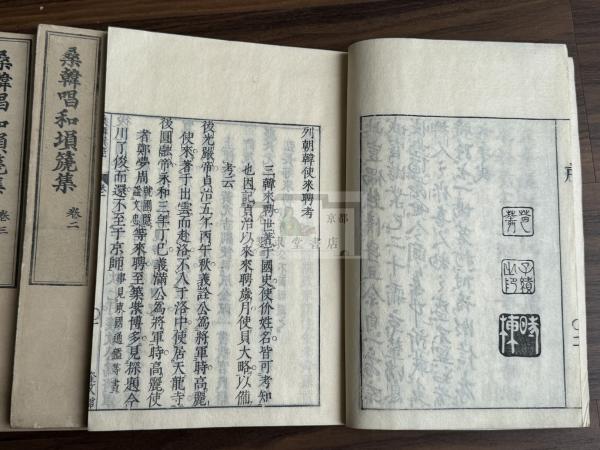 列朝韓使來聘考
三韓來聘世著于國史使价姓名皆可考知
也因記貞治以來來聘歲月使員大略以備
考云
後光嚴帝貞治五年丙午秋義詮公為將軍時高麗
使來著于出雲而赴洛不入于洛中使居天龍寺
後圓融帝永和三年丁巳義滿公為將軍時高麗使
者鄭夢周號圃隱諡文忠等來聘至築紫博多見探題今
川了俊而還不至于京師事見東國通鑑等書
桑韓唱和塤篪集 卷二
桑韓唱和塤篪集 卷三
京都
堂書店